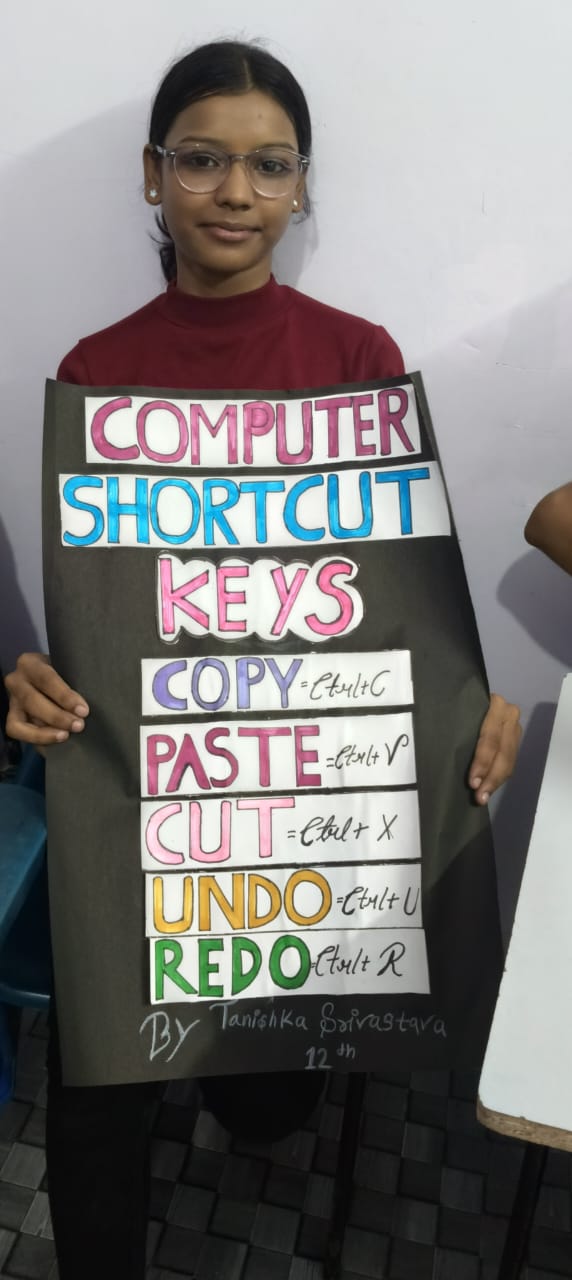 COMPUTER
SHORTCUT
KEYS
COPY = Ctrl+C
PASTE = Ctrl+V
CUT = Ctrl+ X
UNDO = Ctrl+ U
REDO = Ctrl+ R
BY Tanishka Srivastava
12th